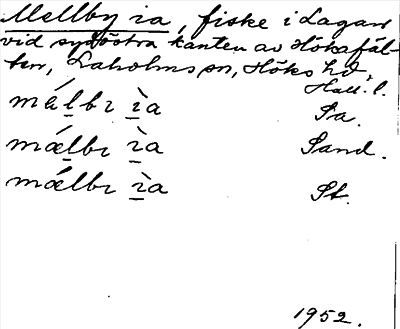 Mellby ia, fiske i Lagan
vid sydöstra kanten av Hökafäl-
ten, Laholms sn, Höks hd,
Hall. l.
mǽlbı ìa Sa.
mǽlbı ìa Sand.
mǽlbı ìa St.
1952.